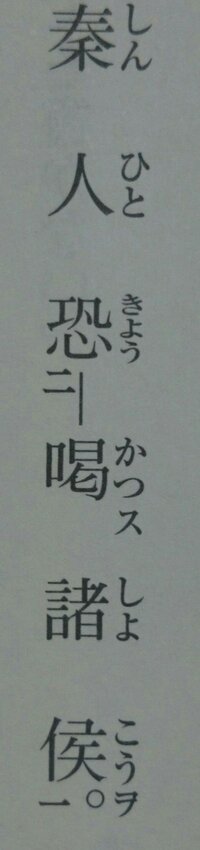 秦人恐喝諸侯。
しんひときようかつスしよこうヲ
二｜一